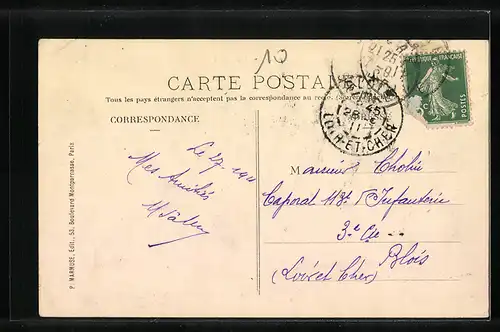 10
CARTE POSTALE
Tous les pays étrangers n'acceptent pas la correspondance au recto.
CORRESPONDANCE
RÉPUBLIQUE FRANÇAISE
POSTES
LOIR-ET-CHER
Le 27-
Mes Amitiés
Monsieur Cholin
Caporal 113e d'Infanterie
3e Cie
Blois
(Loir et Cher)
P. MARMUSE, Edit., 53, Boulevard Montparnasse, Paris